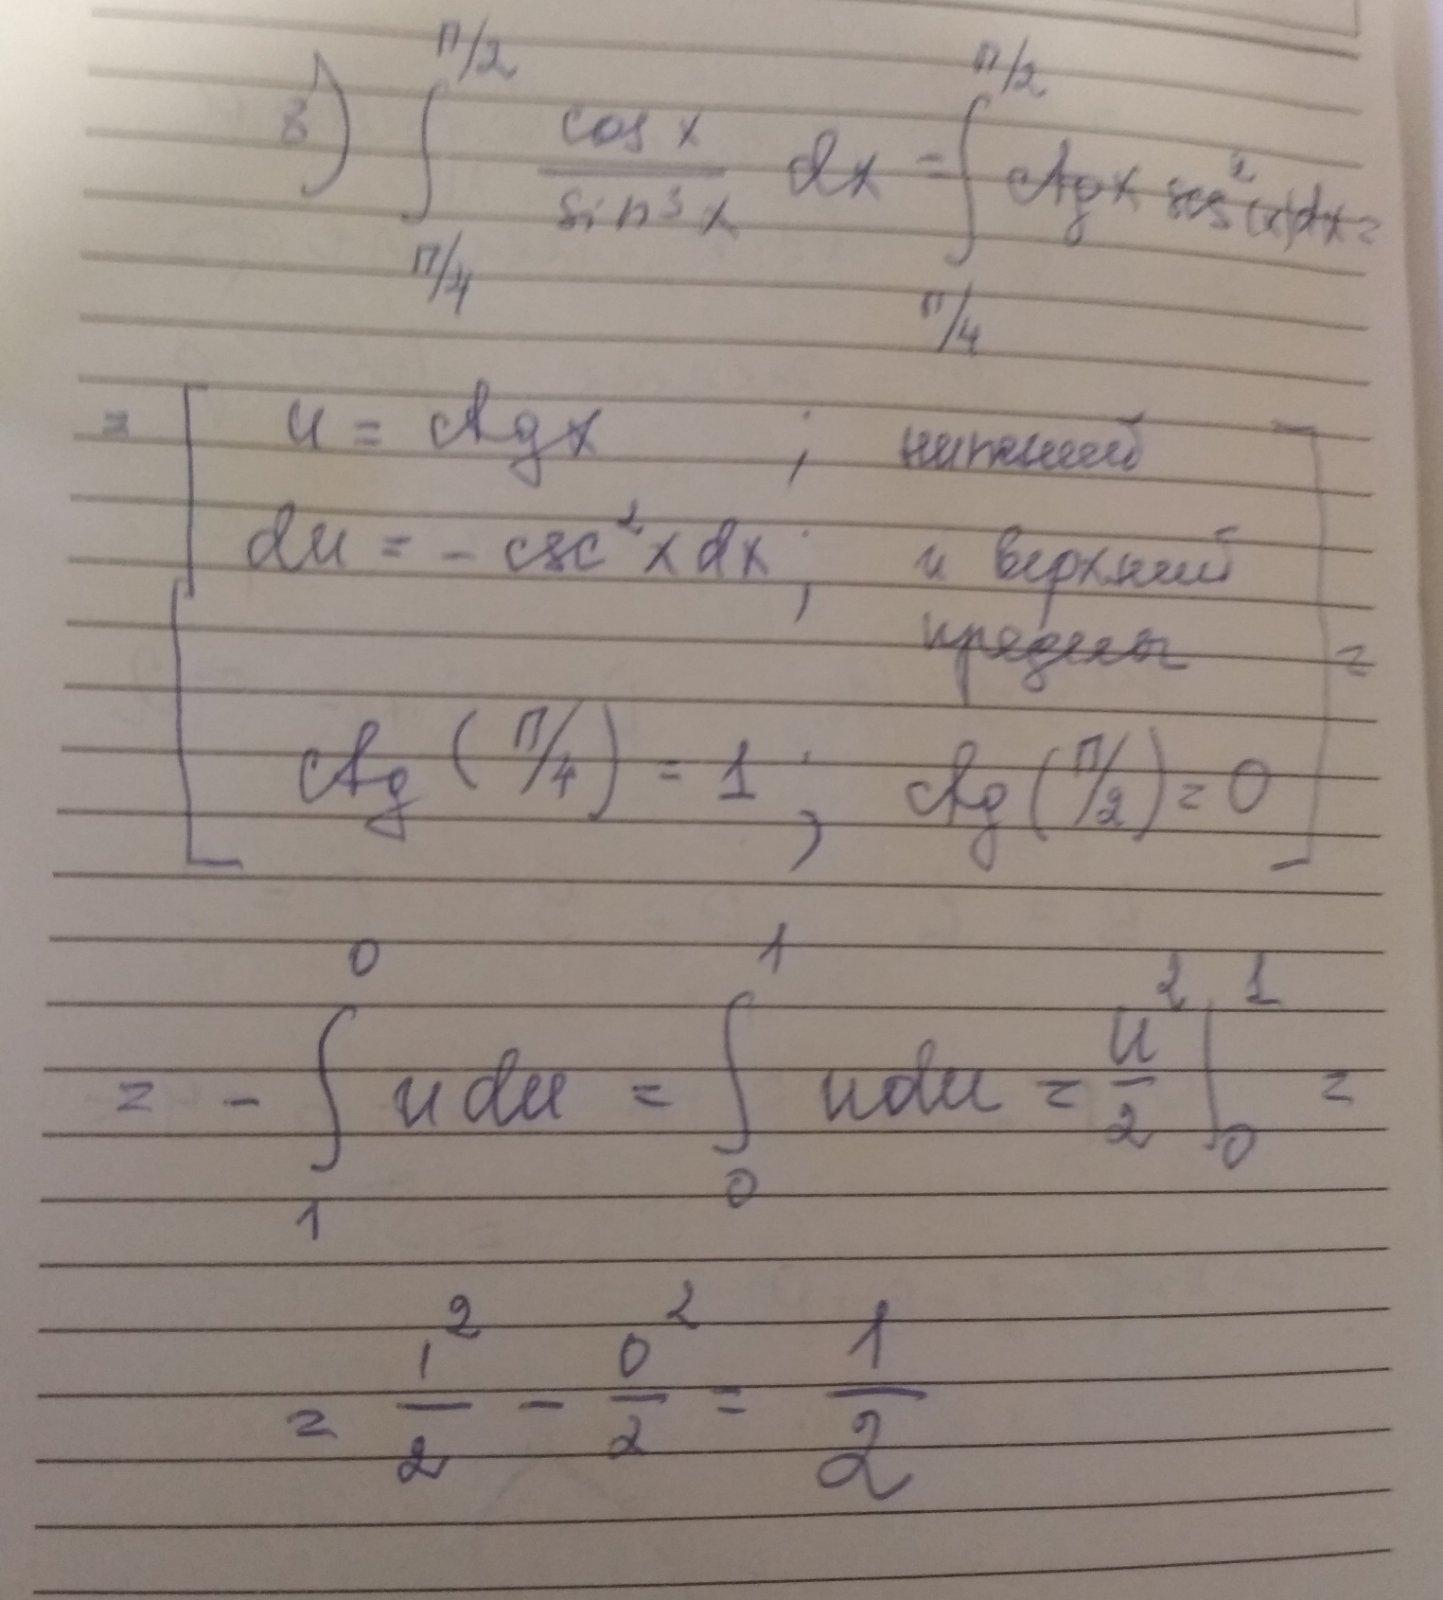 8) ∫_{π/4}^{π/2} cos x / sin³x dx = ∫_{π/4}^{π/2} ctg x csc²(x)dx =
= [ u = ctg x ; нижний
du = - csc²x dx ; и верхний
пределы
ctg (π/4) = 1 ; ctg (π/2) = 0 ] =
= - ∫_1^0 u du = ∫_0^1 u du = u²/2 |_0^1 =
= 1²/2 - 0²/2 = 1/2